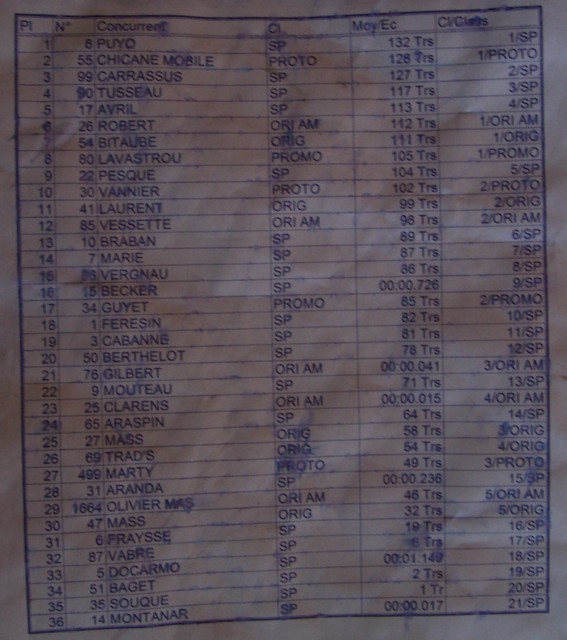 Pl N° Concurrent Cl Moy/Ec Cl/Class
1 8 PUYO SP 132 Trs 1/SP
2 55 CHICANE MOBILE PROTO 128 Trs 1/PROTO
3 99 CARRASSUS SP 127 Trs 2/SP
4 90 TUSSEAU SP 117 Trs 3/SP
5 17 AVRIL SP 113 Trs 4/SP
6 26 ROBERT ORI AM 112 Trs 1/ORI AM
7 54 BITAUBE ORIG 111 Trs 1/ORIG
8 80 LAVASTROU PROMO 105 Trs 1/PROMO
9 22 PESQUE SP 104 Trs 5/SP
10 30 VANNIER PROTO 102 Trs 2/PROTO
11 41 LAURENT ORIG 99 Trs 2/ORIG
12 85 VESSETTE ORI AM 98 Trs 2/ORI AM
13 10 BRABAN SP 89 Trs 6/SP
14 7 MARIE SP 87 Trs 7/SP
15 VERGNAU SP 86 Trs 8/SP
16 15 BECKER SP 00:00.726 9/SP
17 34 GUYET PROMO 85 Trs 2/PROMO
18 1 FERESIN SP 82 Trs 10/SP
19 3 CABANNE SP 81 Trs 11/SP
20 50 BERTHELOT SP 78 Trs 12/SP
21 76 GILBERT ORI AM 00:00.041 3/ORI AM
22 9 MOUTEAU SP 71 Trs 13/SP
23 25 CLARENS ORI AM 00:00.015 4/ORI AM
24 65 ARASPIN SP 64 Trs 14/SP
25 27 MASS ORIG 58 Trs 3/ORIG
26 69 TRAD'S ORIG 54 Trs 4/ORIG
27 499 MARTY PROTO 49 Trs 3/PROTO
28 31 ARANDA SP 00:00.236 15/SP
29 1664 OLIVIER MAS ORI AM 46 Trs 5/ORI AM
30 47 MASS ORIG 32 Trs 5/ORIG
31 6 FRAYSSE SP 19 Trs 16/SP
32 87 VABRE SP Trs 17/SP
33 5 DOCARMO SP 00:01.149 18/SP
34 51 BAGET SP 2 Trs 19/SP
35 35 SOUQUE SP 1 Tr 20/SP
36 14 MONTANAR SP 00:00.017 21/SP